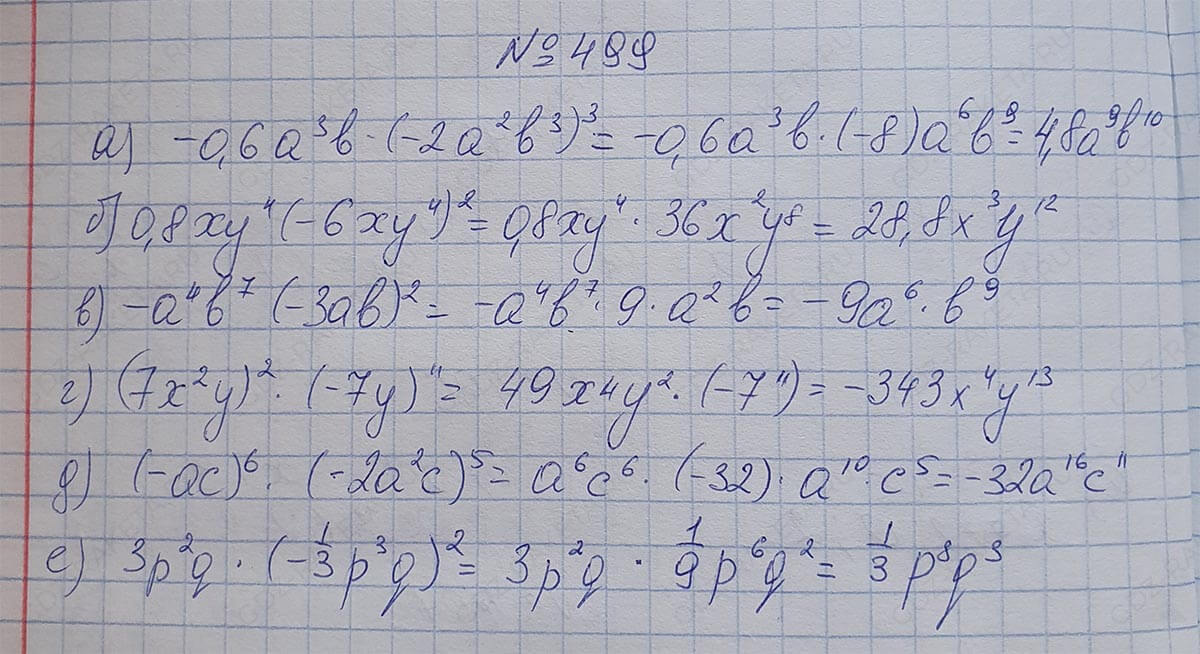 №499
а) -0,6a³b·(-2a²b³)³=-0,6a³b·(-8)a⁶b⁹=4,8a⁹b¹⁰
б) 0,8xy⁴(-6xy⁴)²=0,8xy⁴·36x²y⁸=28,8x³y¹²
в) -a⁴b⁷(-3ab)²=-a⁴b⁷·9·a²b=-9a⁶·b⁹
г) (7x²y)²·(-7y)¹¹=49x4y²·(-7¹¹)=-343x⁴y¹³
д) (-ac)⁶·(-2a²c)⁵=a⁶c⁶·(-32)·a¹⁰·c⁵=-32a¹⁶c¹¹
е) 3p²q·(-1/3p³q)²=3p²q·1/9p⁶q²=1/3p⁸q³